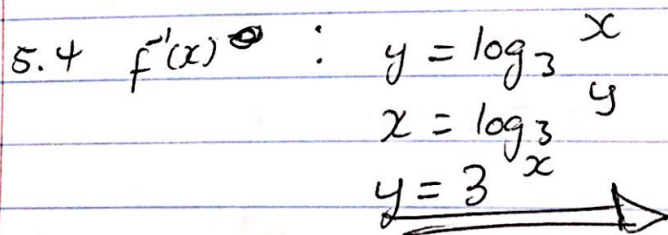 5.4 f⁻¹(x) : y = log₃ x
x = log₃ y
y = 3ˣ